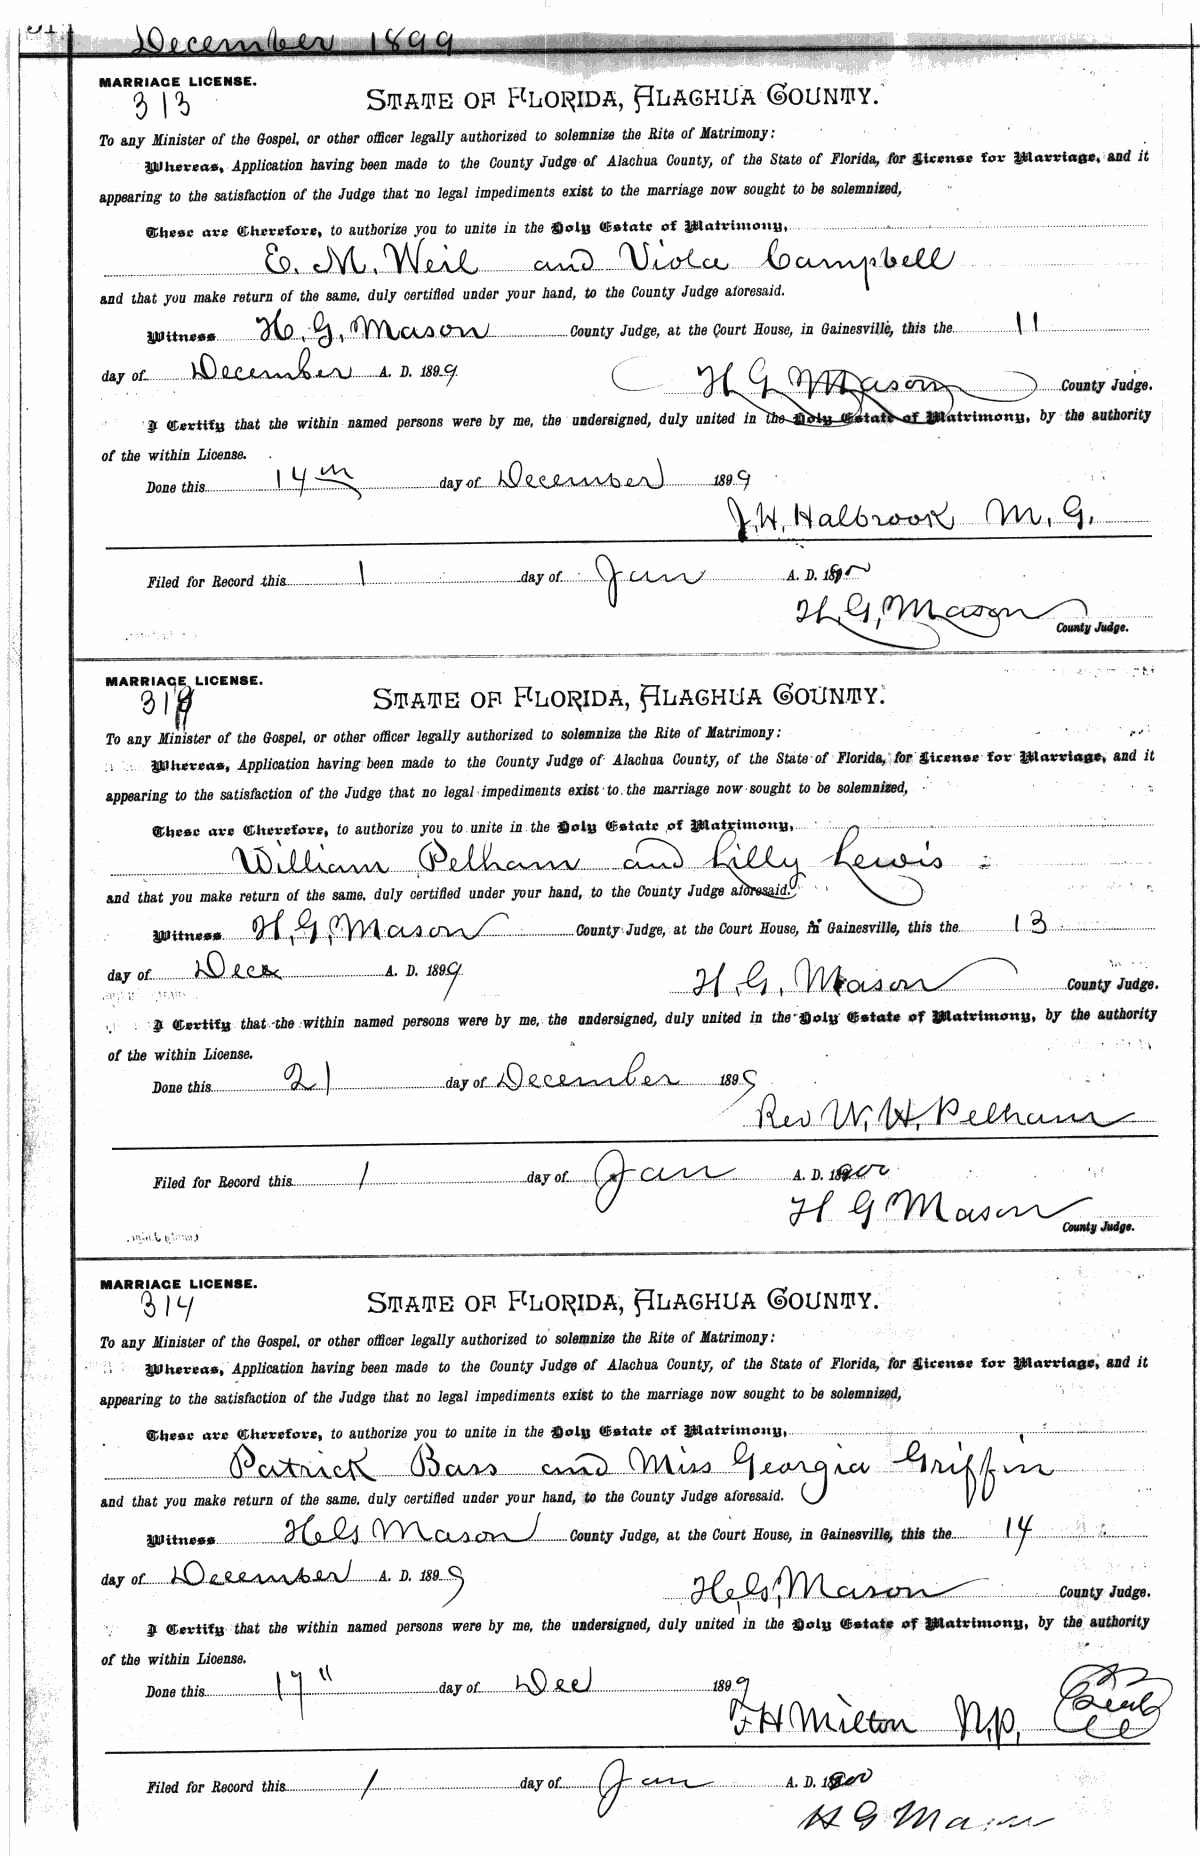 December 1899
MARRIAGE LICENSE.
313
STATE OF FLORIDA, ALACHUA COUNTY.
To any Minister of the Gospel, or other officer legally authorized to solemnize the Rite of Matrimony:
Whereas, Application having been made to the County Judge of Alachua County, of the State of Florida, for License for Marriage, and it
appearing to the satisfaction of the Judge that no legal impediments exist to the marriage now sought to be solemnized,
These are Therefore, to authorize you to unite in the Holy Estate of Matrimony,
E. M. Weil and Viola Campbell
and that you make return of the same, duly certified under your hand, to the County Judge aforesaid.
Witness H. G. Mason County Judge, at the Court House, in Gainesville, this the 11
day of December A. D. 1899 H G Mason County Judge.
I Certify that the within named persons were by me, the undersigned, duly united in the Holy Estate of Matrimony, by the authority
of the within License.
Done this 14th day of December 1899
J. H. Halbrook M. G.
Filed for Record this 1 day of Jan A. D. 1900
H. G. Mason
County Judge.
MARRIAGE LICENSE.
STATE OF FLORIDA, ALACHUA COUNTY.
To any Minister of the Gospel, or other officer legally authorized to solemnize the Rite of Matrimony:
Whereas, Application having been made to the County Judge of Alachua County, of the State of Florida, for License for Marriage, and it
appearing to the satisfaction of the Judge that no legal impediments exist to the marriage now sought to be solemnized,
These are Therefore, to authorize you to unite in the Holy Estate of Matrimony,
William Pelham and Lilly Lewis
and that you make return of the same, duly certified under your hand, to the County Judge aforesaid.
Witness H. G. Mason County Judge, at the Court House, in Gainesville, this the 13
day of Dec A. D. 1899 H. G. Mason County Judge.
I Certify that the within named persons were by me, the undersigned, duly united in the Holy Estate of Matrimony, by the authority
of the within License.
Done this 21 day of December 1899
Rev W. H. Pelham
Filed for Record this 1 day of Jan A. D. 1900
H G Mason
County Judge.
MARRIAGE LICENSE.
314
STATE OF FLORIDA, ALACHUA COUNTY.
To any Minister of the Gospel, or other officer legally authorized to solemnize the Rite of Matrimony:
Whereas, Application having been made to the County Judge of Alachua County, of the State of Florida, for License for Marriage, and it
appearing to the satisfaction of the Judge that no legal impediments exist to the marriage now sought to be solemnized,
These are Therefore, to authorize you to unite in the Holy Estate of Matrimony,
Patrick Bass and Miss Georgia Griffin
and that you make return of the same, duly certified under your hand, to the County Judge aforesaid.
Witness H G Mason County Judge, at the Court House, in Gainesville, this the 14
day of December A. D. 1899 H. G. Mason County Judge.
I Certify that the within named persons were by me, the undersigned, duly united in the Holy Estate of Matrimony, by the authority
of the within License.
Done this 17" day of Dec 1899
F H Milton N.P. Seal
Filed for Record this 1 day of Jan A. D. 1900
H G Mason